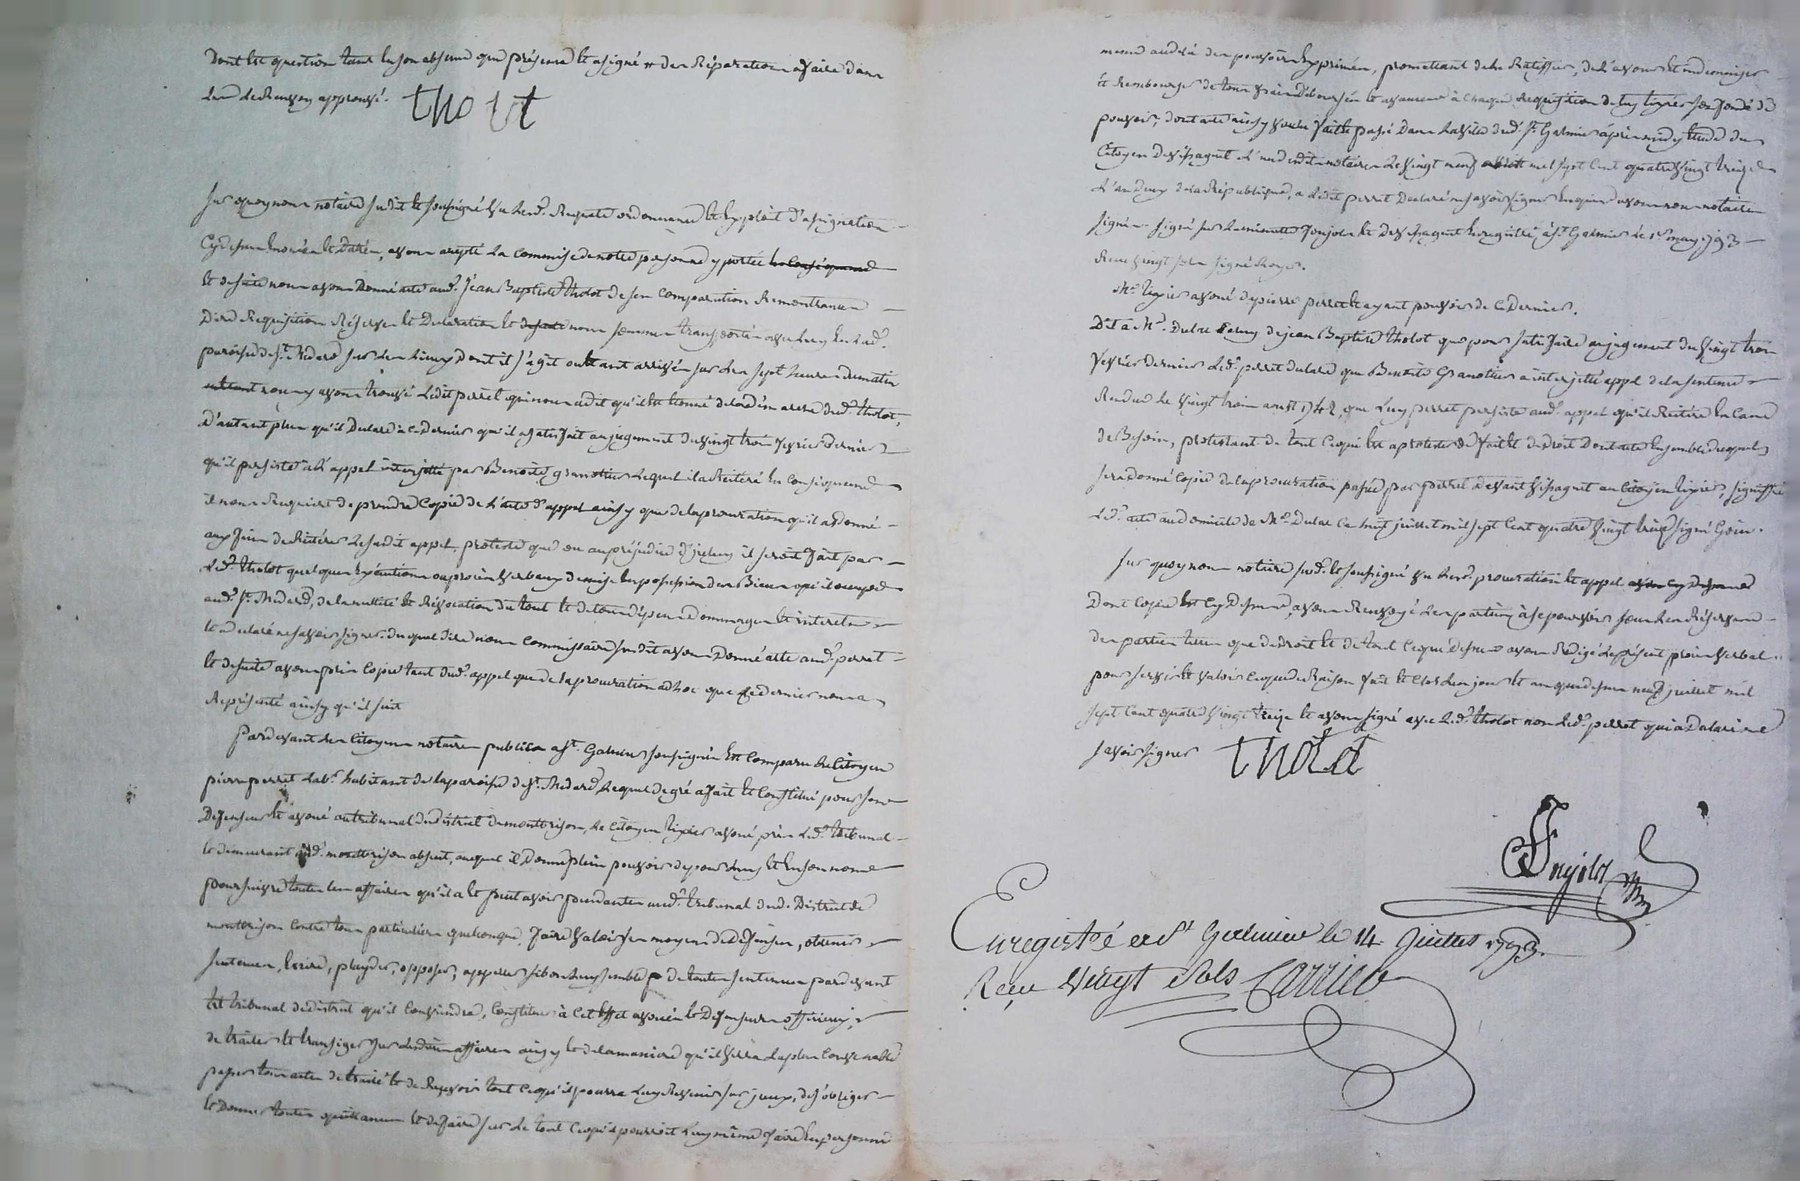 dont est question tant en son absence que présence et a signé // des Réparations a faire dans
Les deux Renvoy approuvé. thollt
Sur quoy nous notaire susdit et soussigné vu lesd. Requete ordonnance et Exploit d'assignation
Cy dessus Enoncés et datés, avons accepté La commise de notre personne y portée
et de suite nous avons Donné acte aud. Jean Baptiste tholot de sen comparution Remontrances
Dires Requisitions Réserves et Declaration et nous sommes transportés avec luy en lad.
paroisse de St. Medard sur les Lieux dont il s'agit ou étant arrivés sur les sept heures du matin
nous y avons trouvé Ledit perret qui nous a dit qu'il est étonné de la démarche dud. tholot,
D'autant plus qu'il Declare a ce Dernier qu'il a satisfait au jugement du vingt trois fevrier dernier
qu'il persiste a L'appel interjetté par Benoite granottier Lequel il a Réitéré En consequence
il nous Requiert de prendre Copie de L'acte d'appel ainsy que de la procuration qu'il a donné
aux fins de Réiterer Le susdit appel, proteste que ou au préjudice d'iceluy il seroit fait par
Led. tholot quelques Exécutions ou procès verbaux de mise En possession des Biens qu'il occupe
aud. St. Medard, de la nullité et Révocation du tout et de tous dépens dommages et interets
et a declaré ne savoir signer. duquel dire nous Commissaire susdit avons Donné acte aud. perret
et de suite avons pris Copie tant dud. appel que de la procuration ad hoc que ce dernier nous a
Représenté ainsy qu'il suit
Pardevant les Citoyens notaires publics a St. Galmier soussignés Est comparu Le Citoyen
pierre perret Lab. habitant de la paroisse de St. Medard, Lequel de gré a fait et Constitué pour son
Défenseur et avoué au tribunal du district de montbrison, Le Citoyen tixier avoué près Led. tribunal
et demeurant aud. montbrison absent, auquel il Donne plein pouvoir de pour luy et En son nom
poursuivre toutes les affaires qu'il a et peut avoir pendantes aud. tribunal dud. District de
montbrison contre tous particuliers quelconques, faire valoir ses moyens de défenses, obtenir
sentences, Ecrire, playder, opposer, appeller si bon luy semble de toutes sentences pardevant
tel tribunal de district qu'il Conviendra, Constituer à Cet Effet avoués et Défenseurs officieux,
de traiter et transiger sur lesdites affaires ainsy et de la maniere qu'il verra La plus Convenable
passer tous actes de traité et de Recevoir tout Ce qu'il pourra Luy Revenir sur iceux, de s'obliger
et Donner toutes quittances et de faire sur le tout Ce qu'il pourroit Luy même faire En personne
meme audelà des pouvoirs Exprimés, promettant de le Ratiffier, de L'avouer et indemniser
et Rembourser de tous frais Déboursés et avances à Chaque Requisition de luy tixier son fondé de
pouvoir, dont acte ainsy voulu fait et passé Dans La ville dud. St. Galmier après midy Etude du
Citoyen Devissaguet L'un desdits notaires Le vingt neuf mil sept Cent quatre vingt treize
L'an deux de la République, a Ledit perret Declaré ne savoir signer Enquis avons nous notaires
signé. signé sur La minutte Fonjols et Devissaguet Enregistré à St. Galmier le 1er. may 1793
Reçu vingt sols signé
Me. tixier avoué de pierre perret et ayant pouvoir de ce Dernier.
Dit a Me. Dulac de jean Baptiste tholot que pour satisfaire au jugement du vingt trois
fevrier dernier Led. perret declare que Benoite Granottier a interjetté appel de la sentence
Rendue Le vingt trois aoust 1748, que Luy perret persiste aud. appel qu'il Réitere En Cas
de Besoin, protestant de tout Ce qui Est a protester de fait et de droit dont acte Ensemble duquel
sera donné Copie de la procuration passée par perret devant Devissaguet au Citoyen tixier, signiffié
Led. acte au domicile de Me. Dulac Ce huit juillet mil sept Cent quatre vingt treize signé Goin.
Sur quoy nous notaire susd. et soussigné vu lesd. procuration et appel
Dont Copie Est Cy dessus, avons Renvoyé Les parties à se pourvoir sous les Réserves
des parties telles que de droit et de tout Ce que dessus avons Rédigé Le présent procès verbal
pour servir et valoir Ce que de Raison fait et Clos Les jours et an que dessus neuf juillet mil
sept Cent quatre vingt treize et avons signé avec Led. tholot non Led. perret qui a Declaré ne
savoir signer tholot
Fonjols
Enregistré à St. Galmier le 14 Juillet 1793.
Reçu Vingt sols Carrier